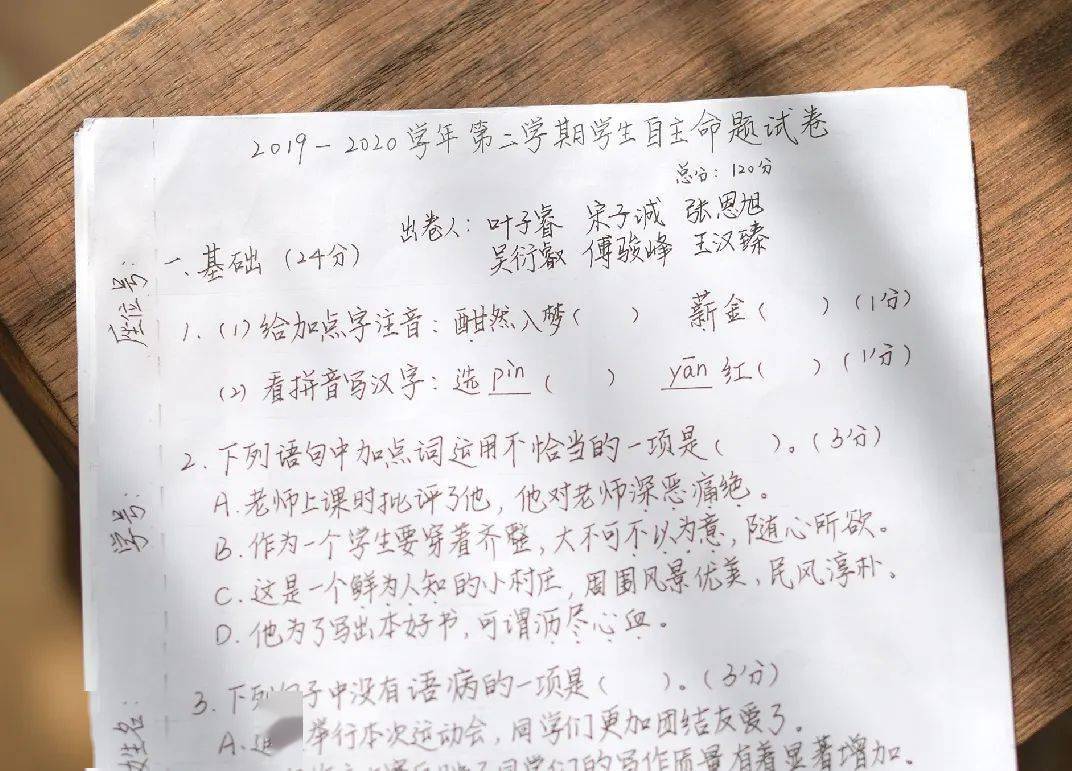 2019-2020学年第二学期学生自主命题试卷
总分：120分
出卷人：叶子睿 宋子诚 张恩旭
吴衍叡 傅骏峰 王汉臻
一、基础（24分）
1.（1）给加点字注音：酣然入梦（ ） 薪金（ ）（1分）
（2）看拼音写汉字：选pìn（ ） yān红（ ）（1分）
2.下列语句中加点词运用不恰当的一项是（ ）。（3分）
A.老师上课时批评了他，他对老师深恶痛绝。
B.作为一个学生要穿着齐整，大不可不以为意，随心所欲。
C.这是一个鲜为人知的小村庄，周围风景优美，民风淳朴。
D.他为了写出本好书，可谓沥尽心血。
3.下列句子中没有语病的一项是（ ）。（3分）
A. 举行本次运动会，同学们更加团结友爱了。
同学们的写作质量有着显著增加。
座位号：
学号：
姓名：